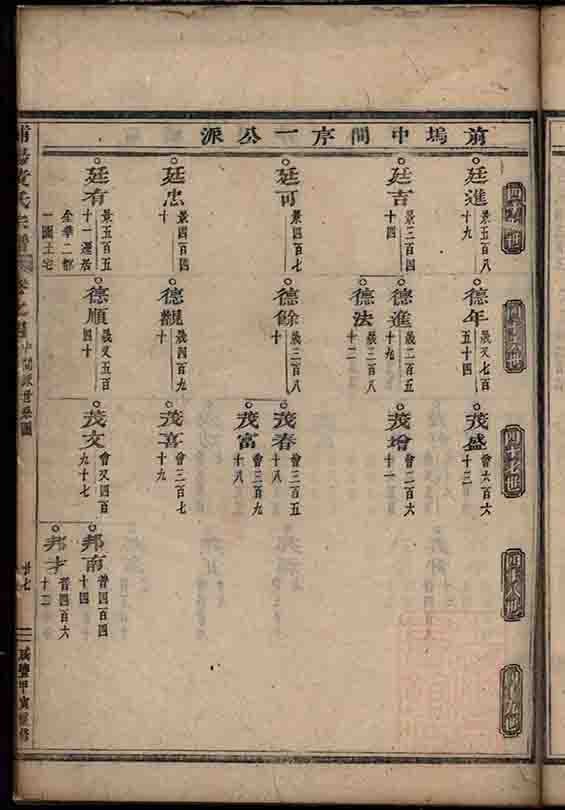 前塢中間序一公派
四十五世
四十六世
四十七世
四十八世
四十九世
廷進
景五百八
十九
廷吉
景三百四
十四
廷可
景四百七
廷忠
景四百四
十
廷有
景五百五
十一遷居
金華二都
一圖上宅
德年
義又七百
五十四
德進
義二百五
十九
德法
義三百八
十二
德餘
義三百八
十
德觀
義四百九
十
德順
義又五百
四十
茂盛
會六百六
十三
茂增
會二百六
十一
茂春
會三百五
十八
茂富
會三百九
十八
茂喜
會三百七
十九
茂文
會又四百
九十七
邦南
普四百四
十四
邦才
普四百六
十二
黃氏宗譜
卷之
中間派世系圖
廿七
咸豐甲寅重修